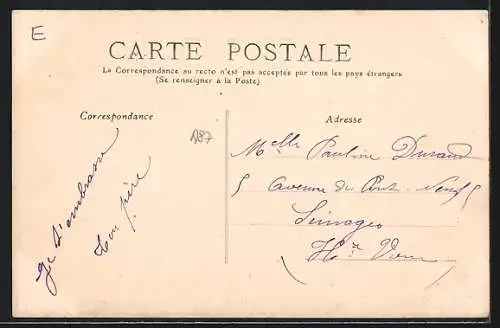 E
CARTE POSTALE
La Correspondance au recto n'est pas acceptée par tous les pays étrangers
(Se renseigner à la Poste)
Correspondance
Adresse
187
Je t'embrasse
Ton père
Melle Pauline Durand
5 Avenue du Pont-Neuf 5
Limoges
(Hte Vienne)